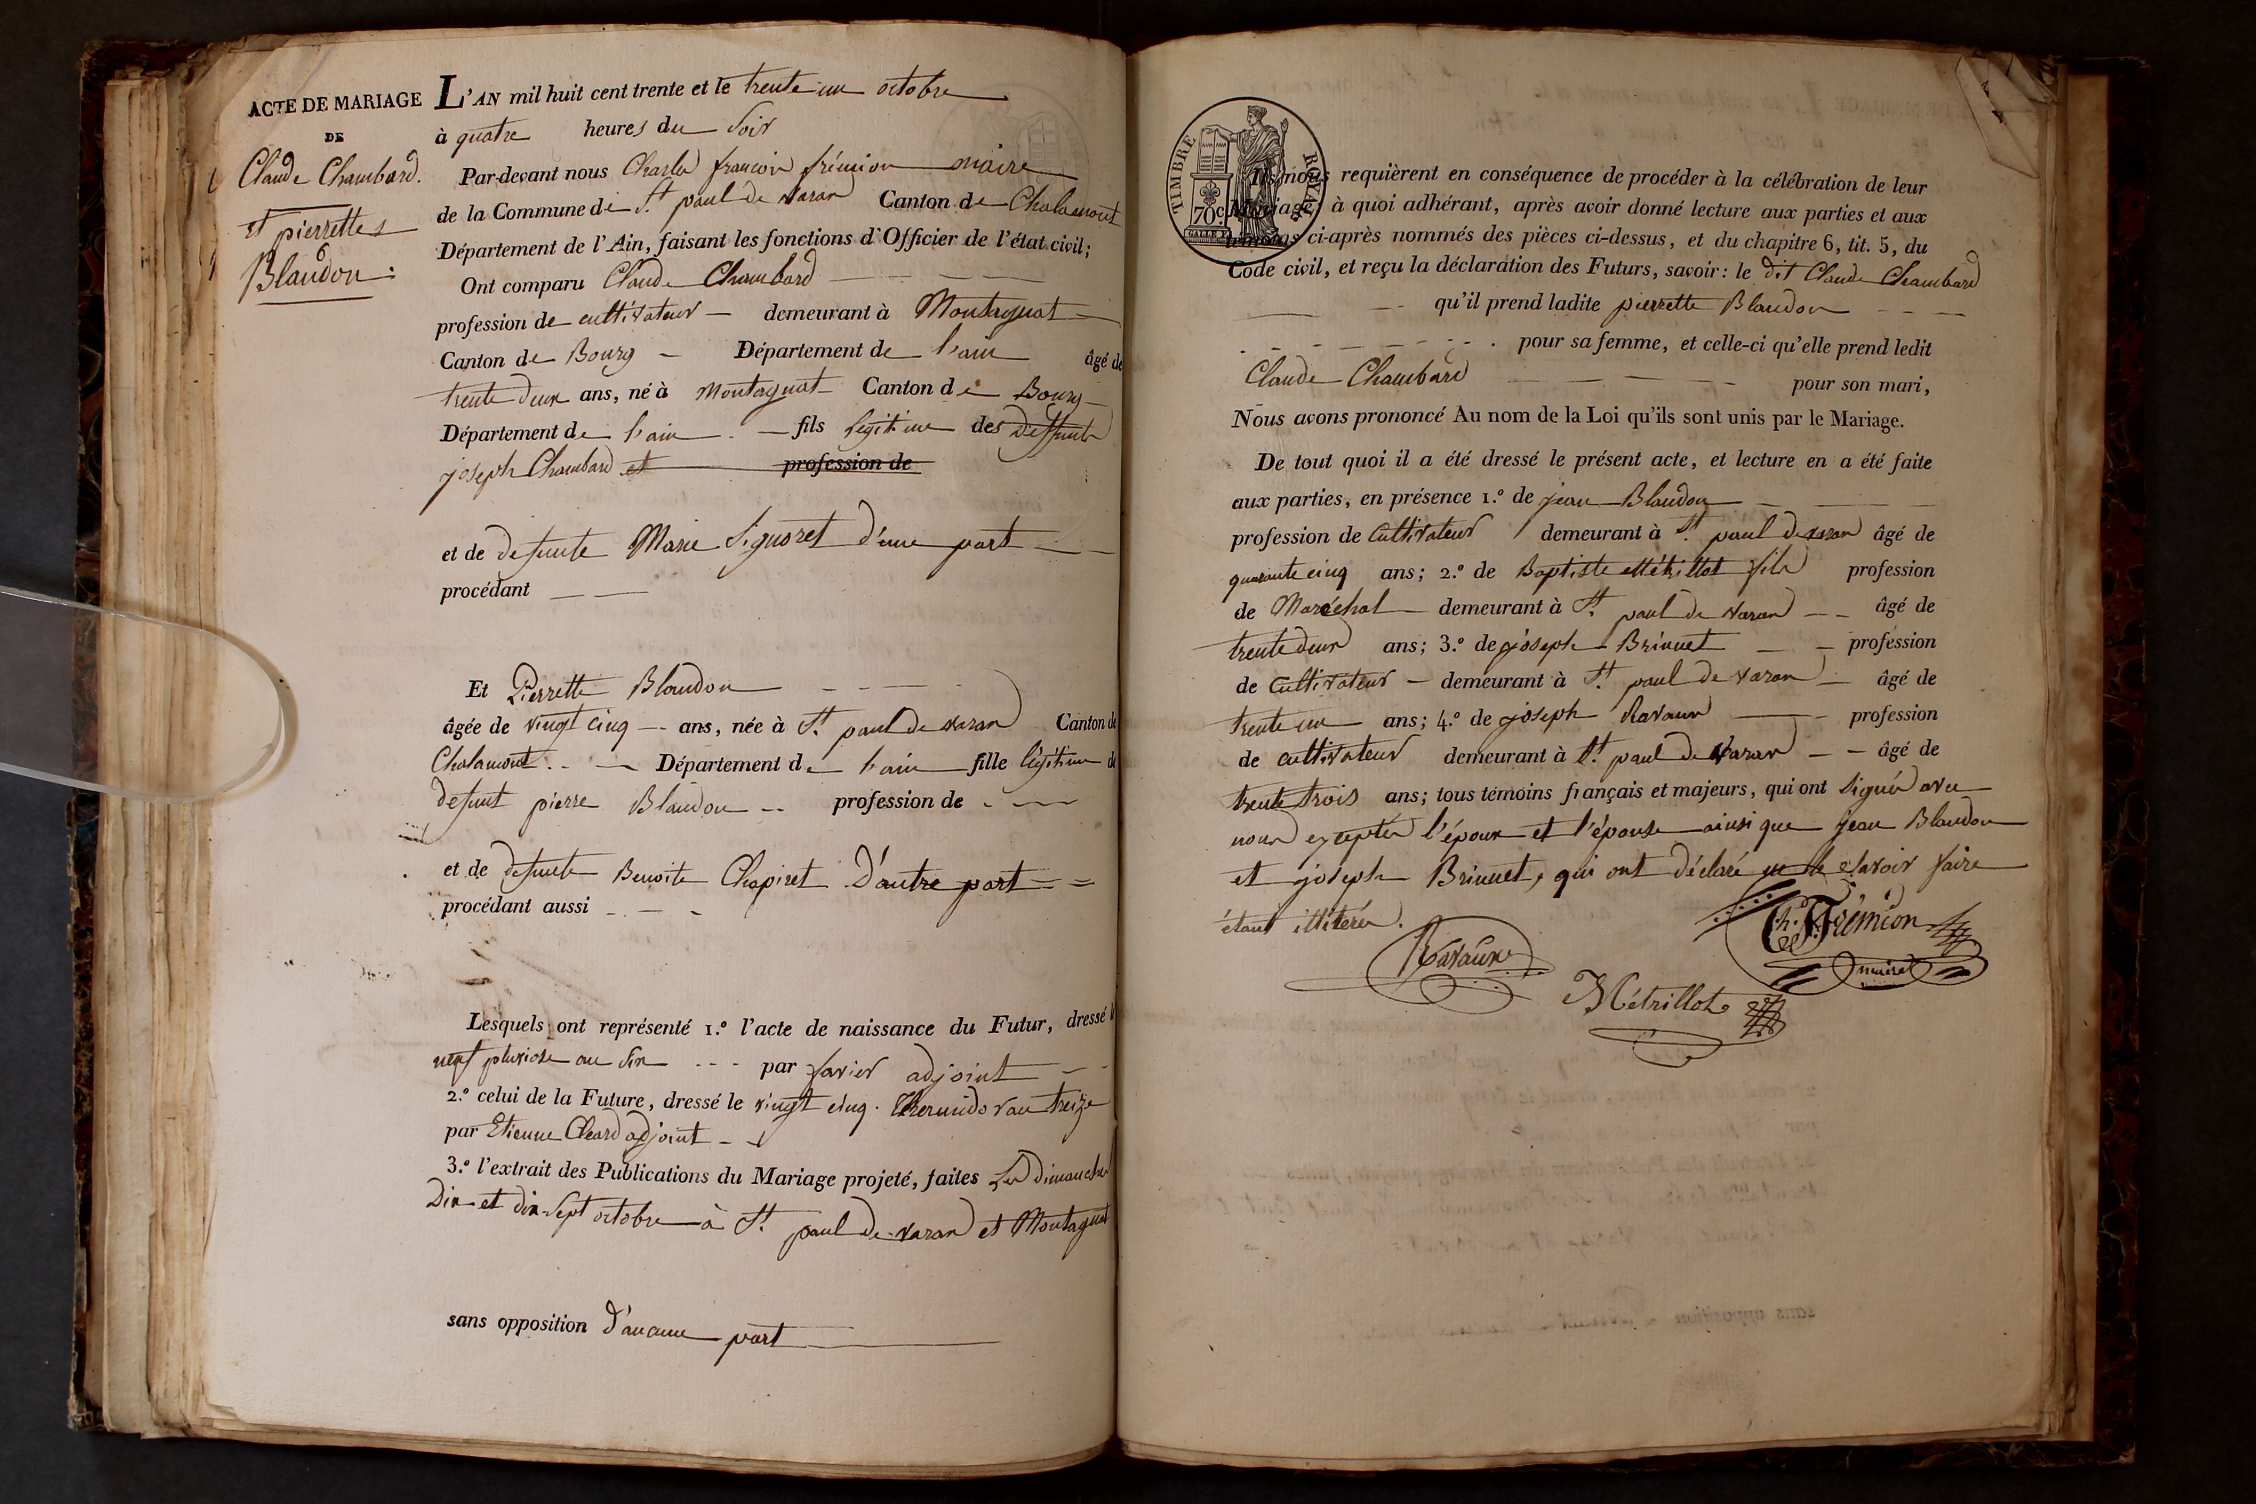 ACTE DE MARIAGE
DE
Claude Chambard.
et pierrette
Blandon :
L'AN mil huit cent trente et le trente un octobre
à quatre heures du soir
Par-devant nous Charles françois frémion maire
de la Commune de St. paul de varax Canton de Chalamont
Département de l'Ain, faisant les fonctions d'Officier de l'état civil;
Ont comparu Claude Chambard
profession de cultivateur demeurant à Montagnat
Canton de Bourg Département de l'ain âgé de
trente deux ans, né à Montagnat Canton de Bourg
Département de l'ain fils légitime des deffunts
joseph Chambard et profession de
et de defunte Marie Signoret d'une part
procédant
Et Pierrette Blandon
âgée de vingt cinq ans, née à St. paul de varax Canton de
Chalamont Département de l'ain fille légitime de
defunt pierre Blandon profession de
et de defunte Benoite Chapiret D'autre part
procédant aussi
Lesquels ont représenté 1.º l'acte de naissance du Futur, dressé le
neuf pluviose an six par favier adjoint
2.º celui de la Future, dressé le vingt cinq Thermidor an treize
par Etienne Cheard adjoint
3.º l'extrait des Publications du Mariage projeté, faites Les dimanches
Dix et dix-sept octobre à St. paul de varax et Montagnat
sans opposition d'aucune part
TIMBRE ROYAL
70c.
Ils nous requièrent en conséquence de procéder à la célébration de leur
Mariage, à quoi adhérant, après avoir donné lecture aux parties et aux
témoins ci-après nommés des pièces ci-dessus, et du chapitre 6, tit. 5, du
Code civil, et reçu la déclaration des Futurs, savoir: le dit Claude Chambard
qu'il prend ladite pierrette Blandon
pour sa femme, et celle-ci qu'elle prend ledit
Claude Chambard pour son mari,
Nous avons prononcé Au nom de la Loi qu'ils sont unis par le Mariage.
De tout quoi il a été dressé le présent acte, et lecture en a été faite
aux parties, en présence 1.º de jean Blandon
profession de Cultivateur demeurant à St. paul de varax âgé de
quarante cinq ans; 2.º de Baptiste Métrillot fils profession
de Maréchal demeurant à St. paul de varax âgé de
trente deux ans; 3.º de joseph Brinnet profession
de Cultivateur demeurant à St. paul de varax âgé de
trente un ans; 4.º de joseph Ravaux profession
de cultivateur demeurant à St. paul de varax âgé de
trente trois ans; tous témoins français et majeurs, qui ont signé avec
nous exceptés l'époux et l'épouse ainsi que jean Blandon
et joseph Brinnet, qui ont déclaré ne le savoir faire
étant illiterés.
Ravaux
Ch. F. Frémion
maire
Métrillot